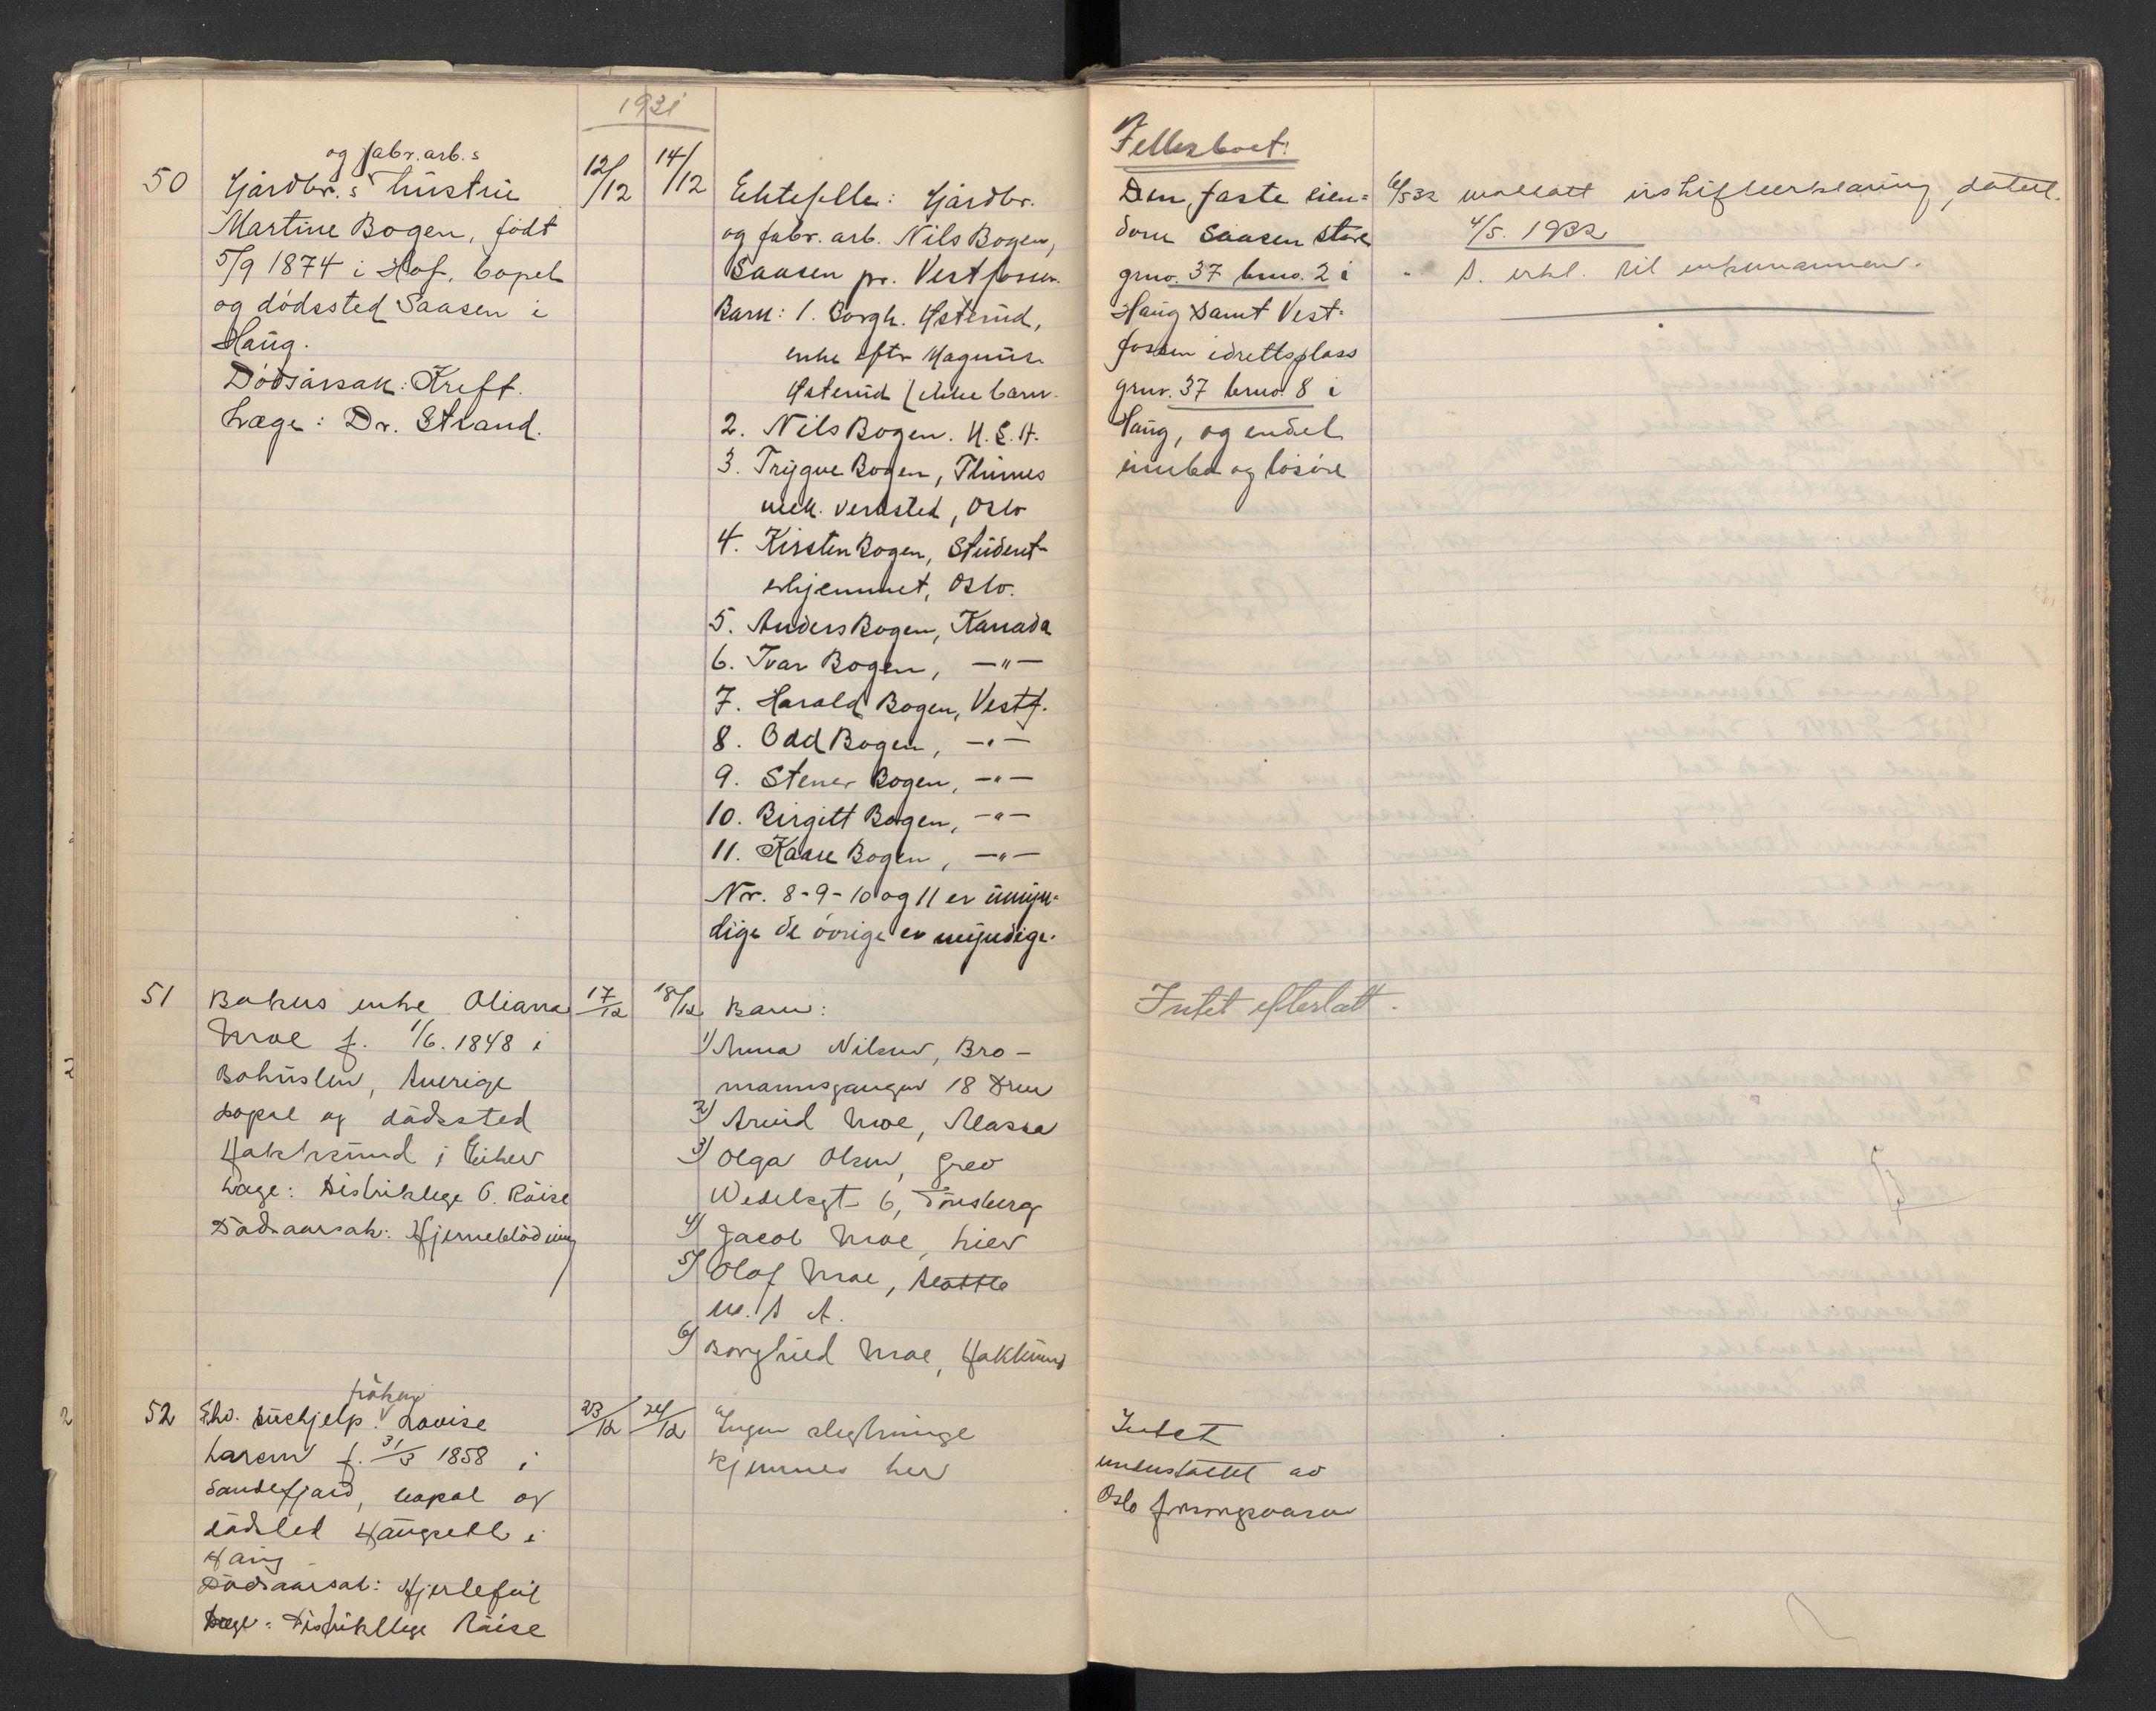 1931
50
og fabr. arb.s
Gårdbr.s hustru
Martine Bogen, født
5/9 1874 i Hof, bopel
og dødssted Saasen i
Haug.
Dødsårsak: Kreft.
Læge: Dr. Strand.
12/12
14/12
Ektefelle: Gårdbr.
og fabr. arb. Nils Bogen,
Saasen pr. Vestfossen.
Barn: 1. Borgh. Østerud,
enke eftr Magnus
Østerud (ikke barn.
2. Nils Bogen. U.S.A.
3. Trygve Bogen, Thunes
mek. verksted, Oslo
4. Kirsten Bogen, Student-
erhjemmet, Oslo.
5. Anders Bogen, Kanada
6. Ivar Bogen, —"—
7. Harald Bogen, Vestf.
8. Odd Bogen, —"—
9. Stener Bogen, —"—
10. Birgitt Bogen, —"—
11. Kaare Bogen, —"—
Nr. 8-9-10 og 11 er umyn-
dige de øvrige er myndige.
Fellesboet:
Den faste eien=
dom Saasen store
grno. 37 brno. 2 i
Haug samt Vest-
fossen idrettsplass
grnr. 37 brno. 8 i
Haug, og endel
innbo og løsøre
6/5 32 mottatt uskifteerklæring, datert
4/5. 1932
" S. erkl. til enkemannen.
51
Bakers enke Oliana
Moe f. 1/6. 1848 i
Bohuslen, Sverige
bopel og dødssted
Hokksund i Eiker
Læge: Distriktlege O. Röise
Dødsaarsak: Hjerneblødning
17/12
18/12
Barn:
1) Anna Nilsen, Bro-
mannsgangen 18 Drm
2) Arvid Moe, Alaska
3) Olga Olsen, Grev
Wedelsgt 6, Tönsberg
4) Jacob Moe, Lier
5) Olaf Moe, Seattle
U. S A.
6) Borghild Moe, Hokksund
Intet efterlatt.
52
frøken
Fhv. hushjelp Lovise
Larsen f. 31/3 1858 i
Sandefjord, bopel og
dødsted Haugsetb i
Haug
Dødsaarsak: Hjertefeil
Læge: Distriktlege Röise
23/12
24/12
Ingen slegtninge
kjennes her
Intet
understøttet av
Oslo forsorgsvæsen